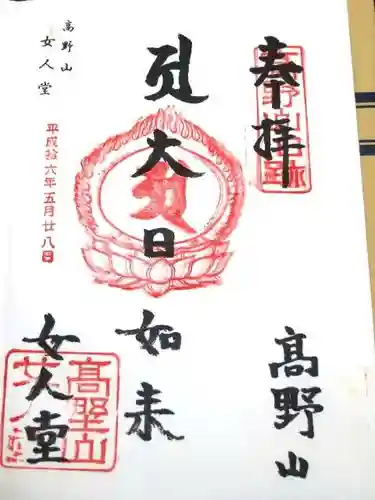 奉拝
高野山
大日如来
高野山
女人堂
平成拾六年五月廿八日
女人堂
高野山